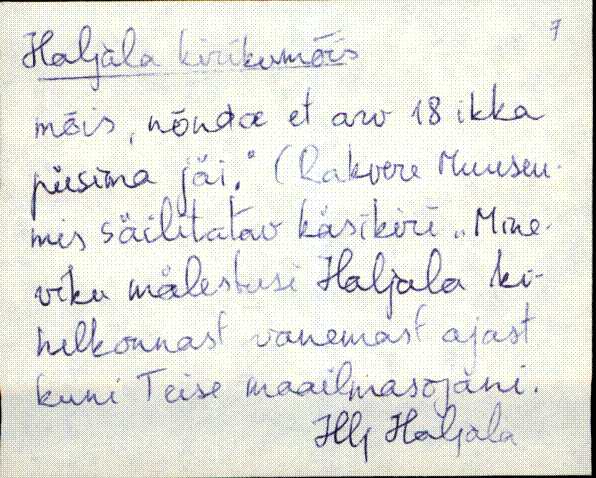 7
Haljala kirikumõis
mõis, nõnda et arv 18 ikka
püsima jäi." (Rakvere Muuseu-
mis säilitatav käsikiri „Mine-
viku mälestusi Haljala ki-
helkonnast vanemast ajast
kuni Teise maailmasõjani.
Hlj Haljala